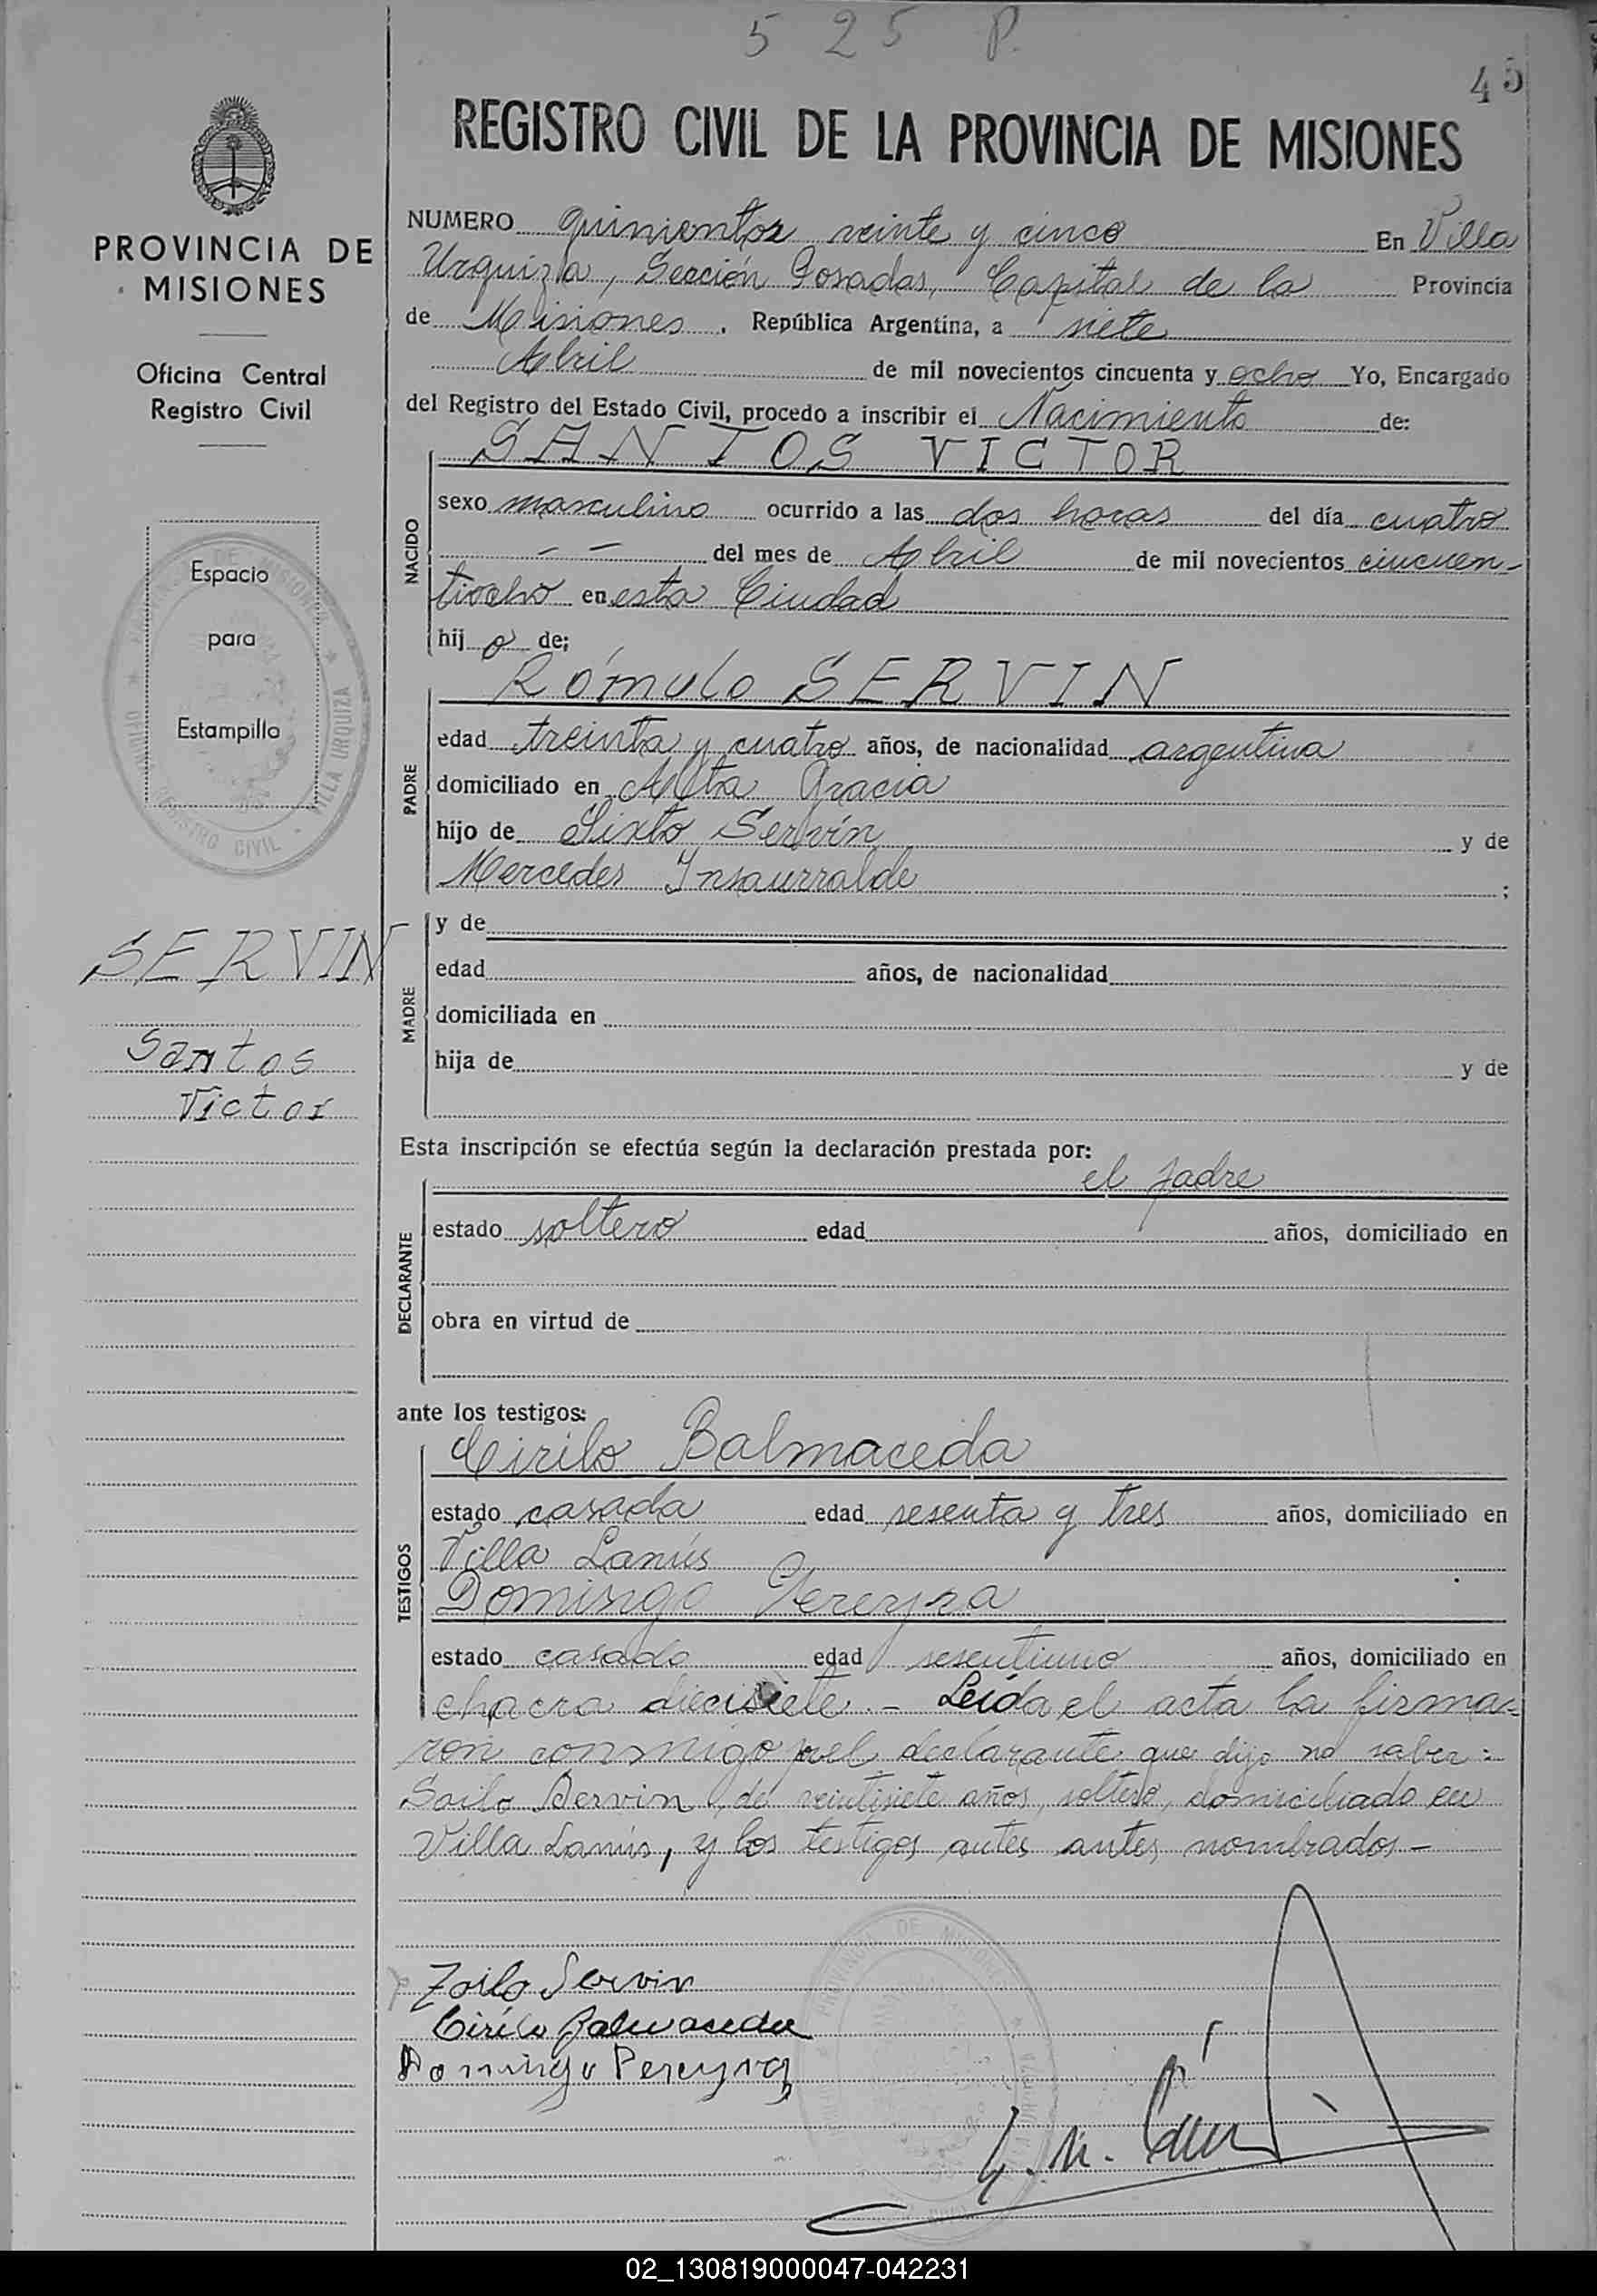 5 25 P.
45
REGISTRO CIVIL DE LA PROVINCIA DE MISIONES
PROVINCIA DE
MISIONES
Oficina Central
Registro Civil
Espacio
para
Estampilla
SERVIN
Santos
Victor
NUMERO quinientos veinte y cinco En Villa
Urquiza, Sección Posadas, Capital de la Provincia
de Misiones, República Argentina, a siete
Abril de mil novecientos cincuenta y ocho Yo, Encargado
del Registro del Estado Civil, procedo a inscribir el Nacimiento de:
SANTOS VICTOR
NACIDO
sexo masculino ocurrido a las dos horas del día cuatro
-- del mes de Abril de mil novecientos cincuen-
tiocho en esta Ciudad
hij o de;
Rómulo SERVIN
PADRE
edad treinta y cuatro años, de nacionalidad argentina
domiciliado en Alta Gracia
hijo de Sixto Servín y de
Mercedes Insaurralde ;
MADRE
y de
edad años, de nacionalidad
domiciliada en
hija de y de
Esta inscripción se efectúa según la declaración prestada por:
el padre
DECLARANTE
estado soltero edad años, domiciliado en
obra en virtud de
ante los testigos:
TESTIGOS
Cirilo Balmaceda
estado casada edad sesenta y tres años, domiciliado en
Villa Lanús
Domingo Pereyra
estado casado edad sesentiuno años, domiciliado en
chacra diecisiete.- Leída el acta la firma=
ron conmigo p/el declarante que dijo no saber:
Soilo Servin, de veintisiete años, soltero, domiciliado en
Villa Lanús, y los testigos antes antes nombrados-
Zoilo Servin
Cirilo Balmaceda
Domingo Pereyra
PROVINCIA DE MISIONES
VILLA URQUIZA
REGISTRO CIVIL
02_130819000047-042231